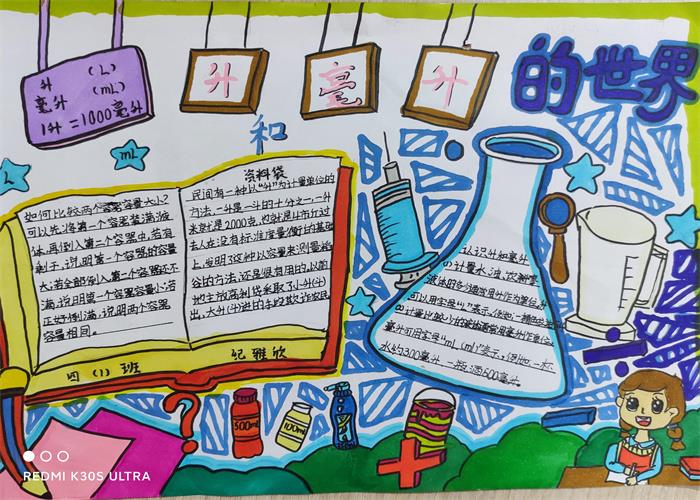 升 (L)
毫升 (mL)
1升=1000毫升
升
毫
升
的世界
和
L
mL
如何比较两个容器容量大小?
可以先将第一个容器装满液
体,再倒入第二个容器中,若有
剩于,说明第一个容器的容量
大;若全部倒入第二个容器还不
满,说明第一个容器容量小;若
正好倒满,说明两个容器
容量相同。
资料袋
民间有一种以“升”为计量单位的
方法,一升是一斗的十分之一,一升
米就是2000克,也就是4市斤过
去人在没有标准度量衡的基础
上,发明了这种以容量来测量粮
谷的方法,还是很有用的,以前
出,大升(斗)进的手段欺诈农民
认识升和毫升
计量水、油、饮料等
可以用字母“L”表示,例如:一桶色拉油
毫升可用字母“mL(ml)”表示;例如:一杯
水约300毫升 一瓶酒600毫升
四(1)班 纪雅欣
500ml
100ml
REDMI K30S ULTRA